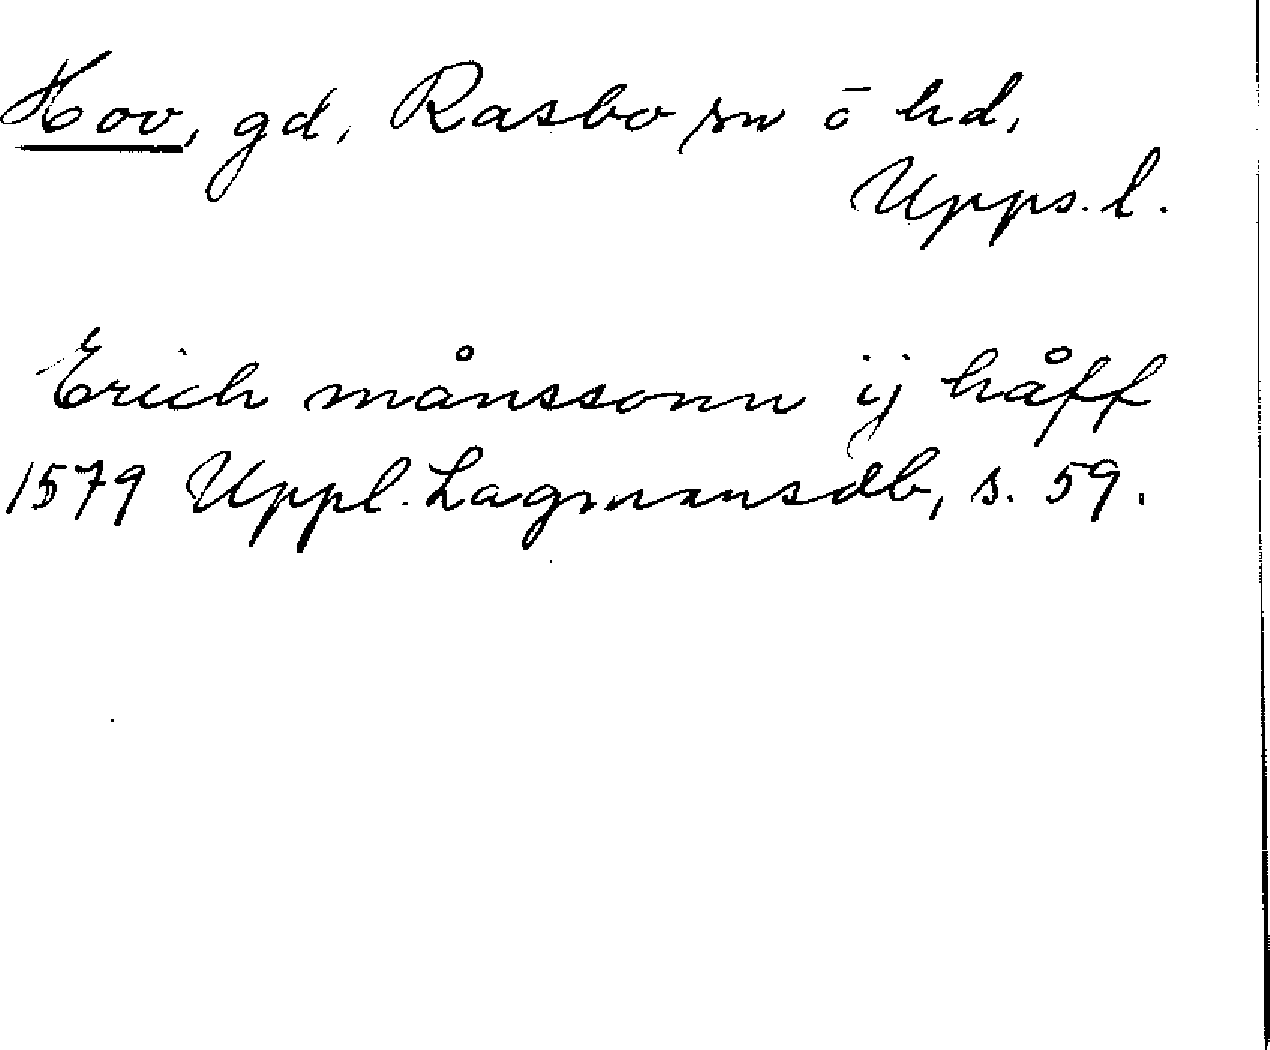 Hov, gd, Rasbo sn o hd,
Upps. l.
Erich månssonn ij håff
1579 Uppl. Lagmansdb, s. 59.